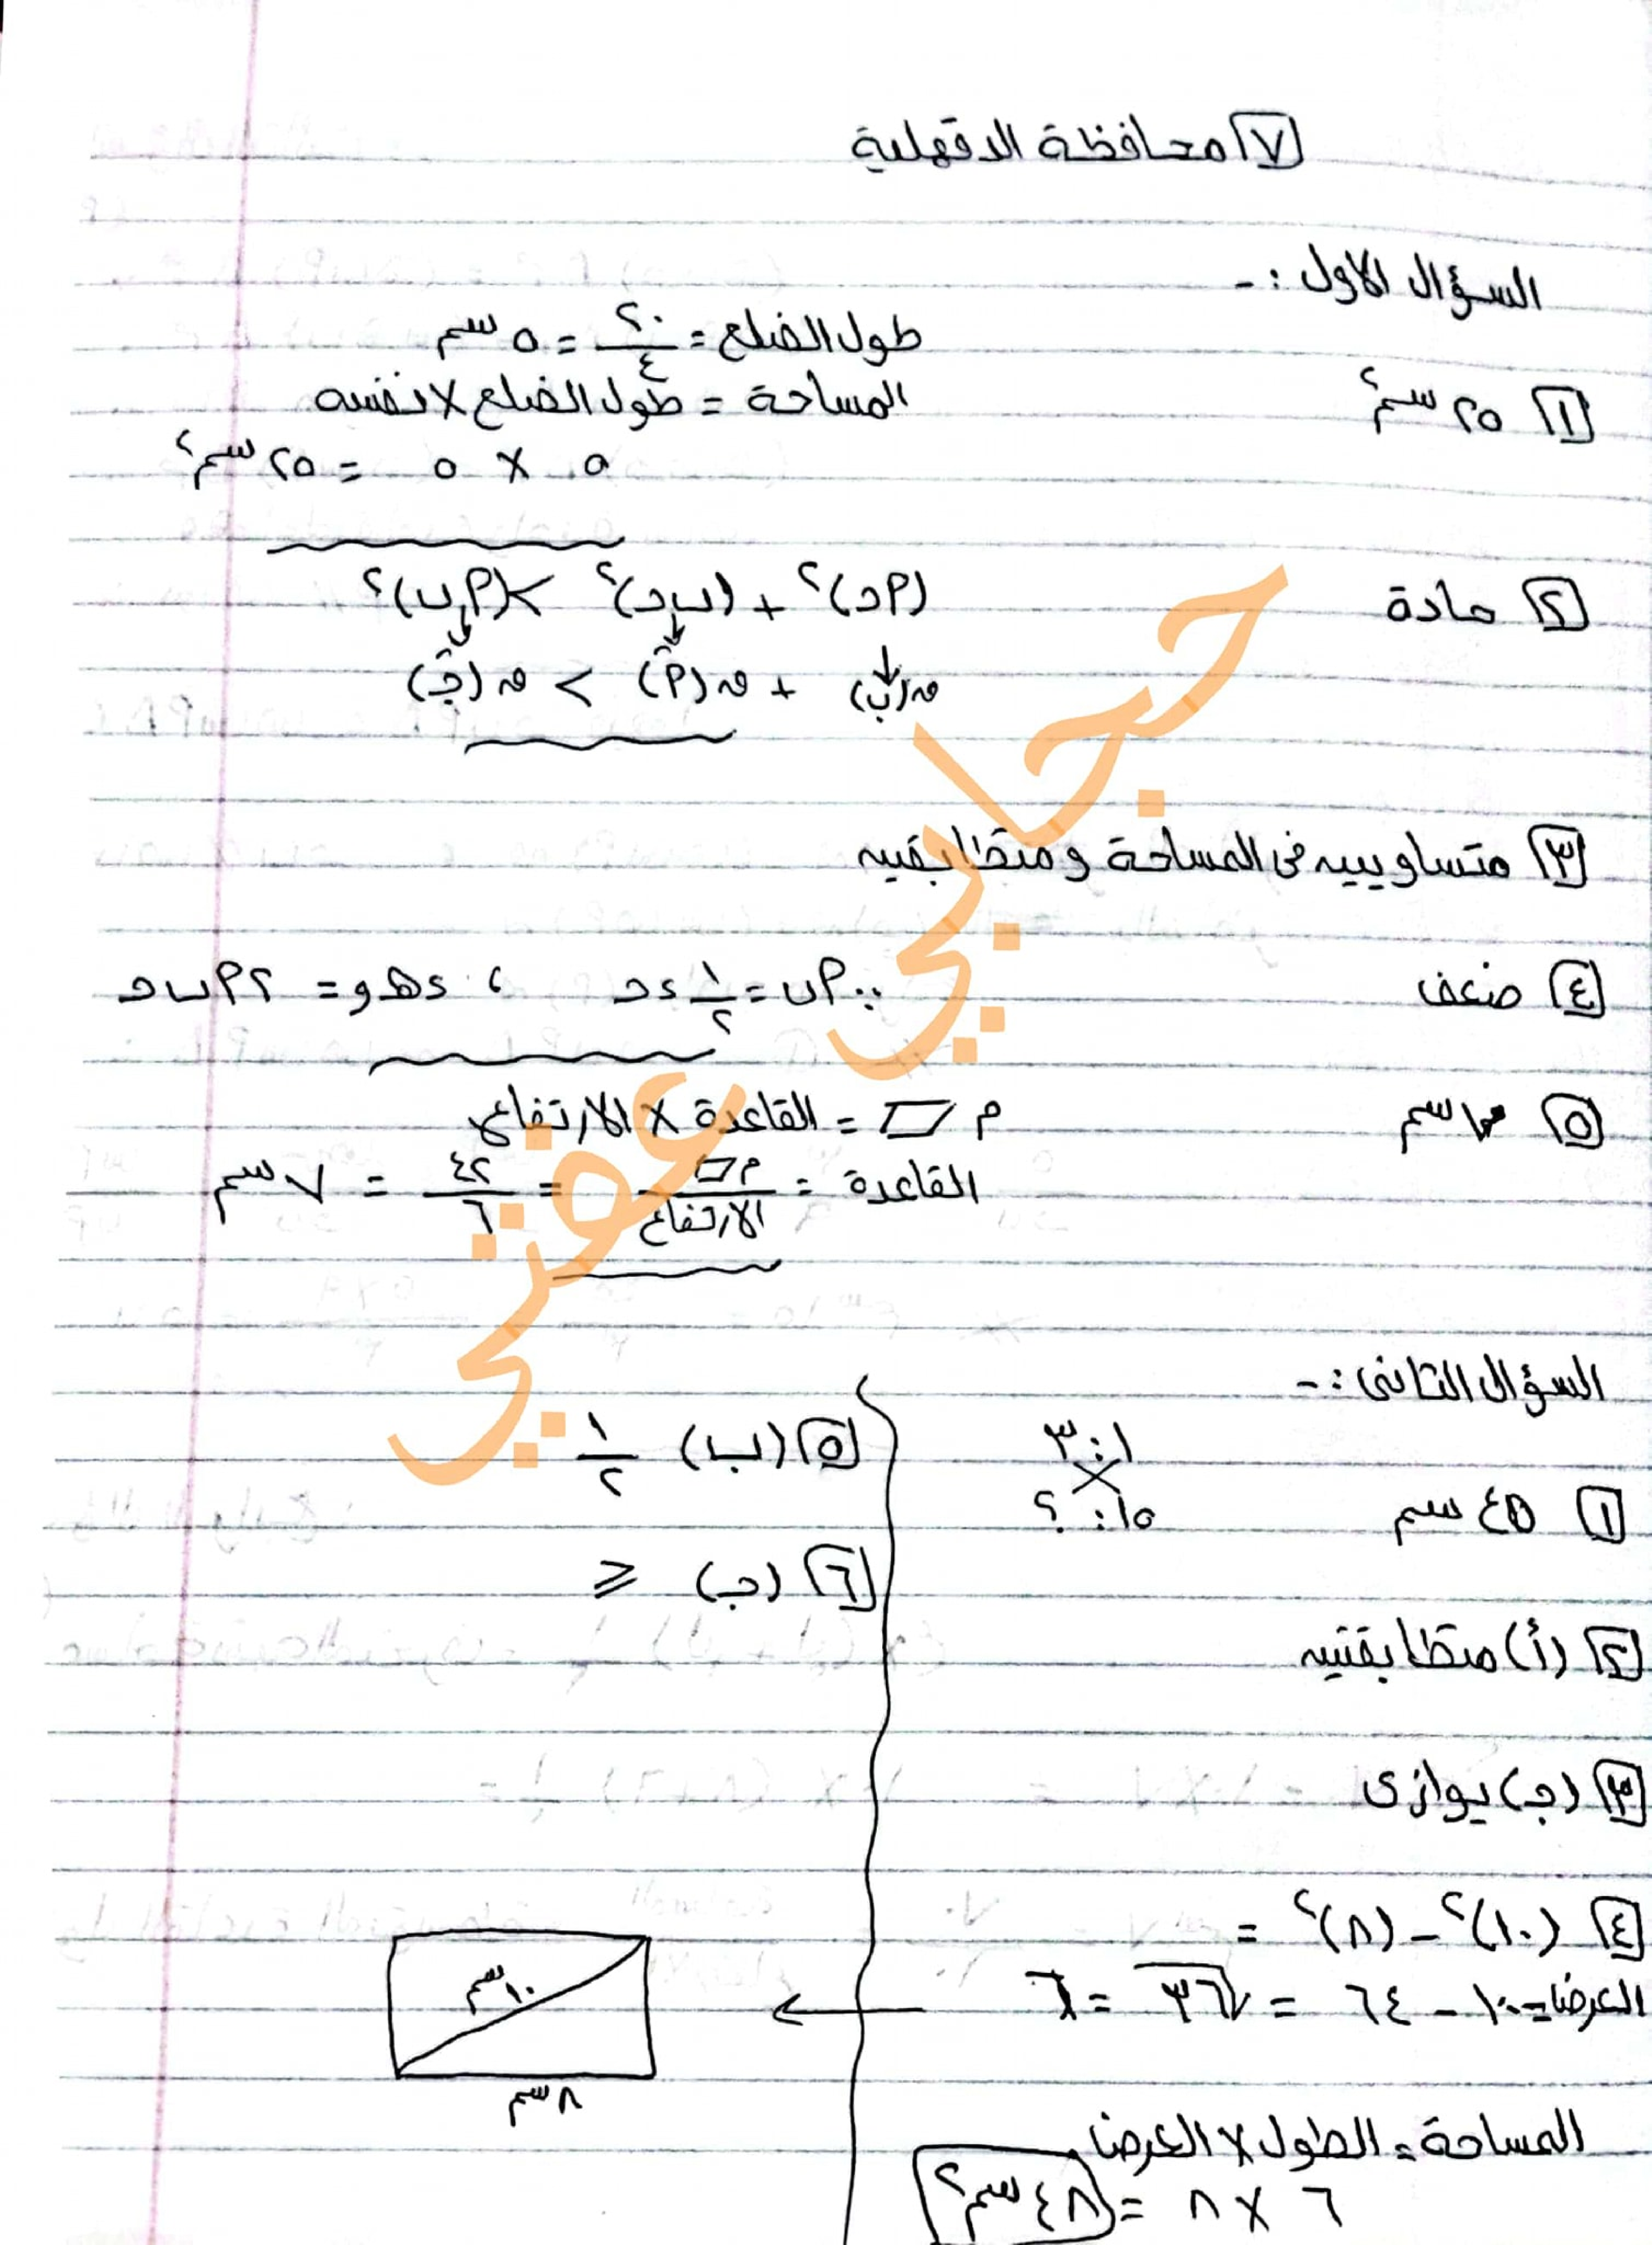 ٧ محافظة الدقهلية
السؤال الأول :-
طول الضلع = ٢٠/٤ = ٥ سم
١ ٢٥ سم٢
المساحة = طول الضلع × نفسه
٥ × ٥ = ٢٥ سم٢
٢ حادة
(أحـ)٢ + (ب حـ)٢ > (أ ب)٢
ق(ب) + ق(أ) > ق(جـ)
٣ متساويين في المساحة و متطابقين
٤ ضعف
∵ أ ب = ١/٢ د حـ ، د هـ و = ٢ أ ب حـ
٥ سم
م ▱ = القاعدة × الارتفاع
القاعدة = م▱/الارتفاع = ٤٢/٦ = ٧ سم
السؤال الثاني :-
١ : ٣
١ ٤٥ سم
١٥ : ؟
٢ (أ) متطابقتين
٣ (جـ) يوازى
٤ (١٠)٢ - (٨)٢ =
العرض = ١٠٠ - ٦٤ = √٣٦ = ٦
المساحة = الطول × العرض
٦ × ٨ = ٤٨ سم٢
٥ (ب) ١/٢
٦ (جـ) ≥
١٠ سم
٨ سم
حجابي عفتي